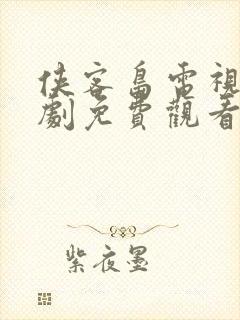 俠客島電視
劇免費觀看
紫夜墨